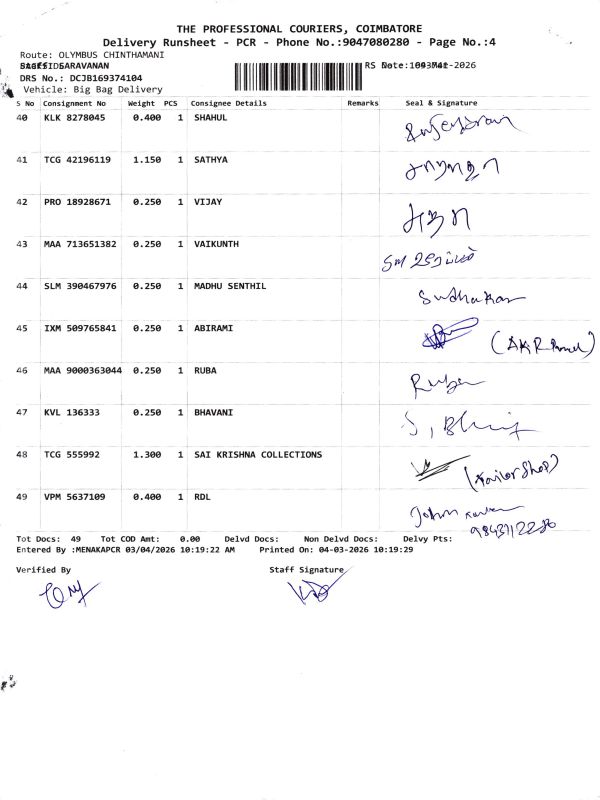 THE PROFESSIONAL COURIERS, COIMBATORE
Delivery Runsheet - PCR - Phone No.:9047080280 - Page No.:4
Route: OLYMBUS CHINTHAMANI
SARAVANAN
DRS No.: DCJB169374104
Vehicle: Big Bag Delivery
S No Consignment No Weight PCS Consignee Details Remarks Seal & Signature
40 KLK 8278045 0.400 1 SHAHUL
41 TCG 42196119 1.150 1 SATHYA
42 PRO 18928671 0.250 1 VIJAY
43 MAA 713651382 0.250 1 VAIKUNTH
44 SLM 390467976 0.250 1 MADHU SENTHIL Sudhakar
45 IXM 509765841 0.250 1 ABIRAMI
46 MAA 9000363044 0.250 1 RUBA Ruba
47 KVL 136333 0.250 1 BHAVANI
48 TCG 555992 1.300 1 SAI KRISHNA COLLECTIONS (Tailor Shop)
49 VPM 5637109 0.400 1 RDL John
Tot Docs: 49 Tot COD Amt: 0.00 Delvd Docs: Non Delvd Docs: Delvy Pts:
Entered By :MENAKAPCR 03/04/2026 10:19:22 AM Printed On: 04-03-2026 10:19:29
Verified By Staff Signature